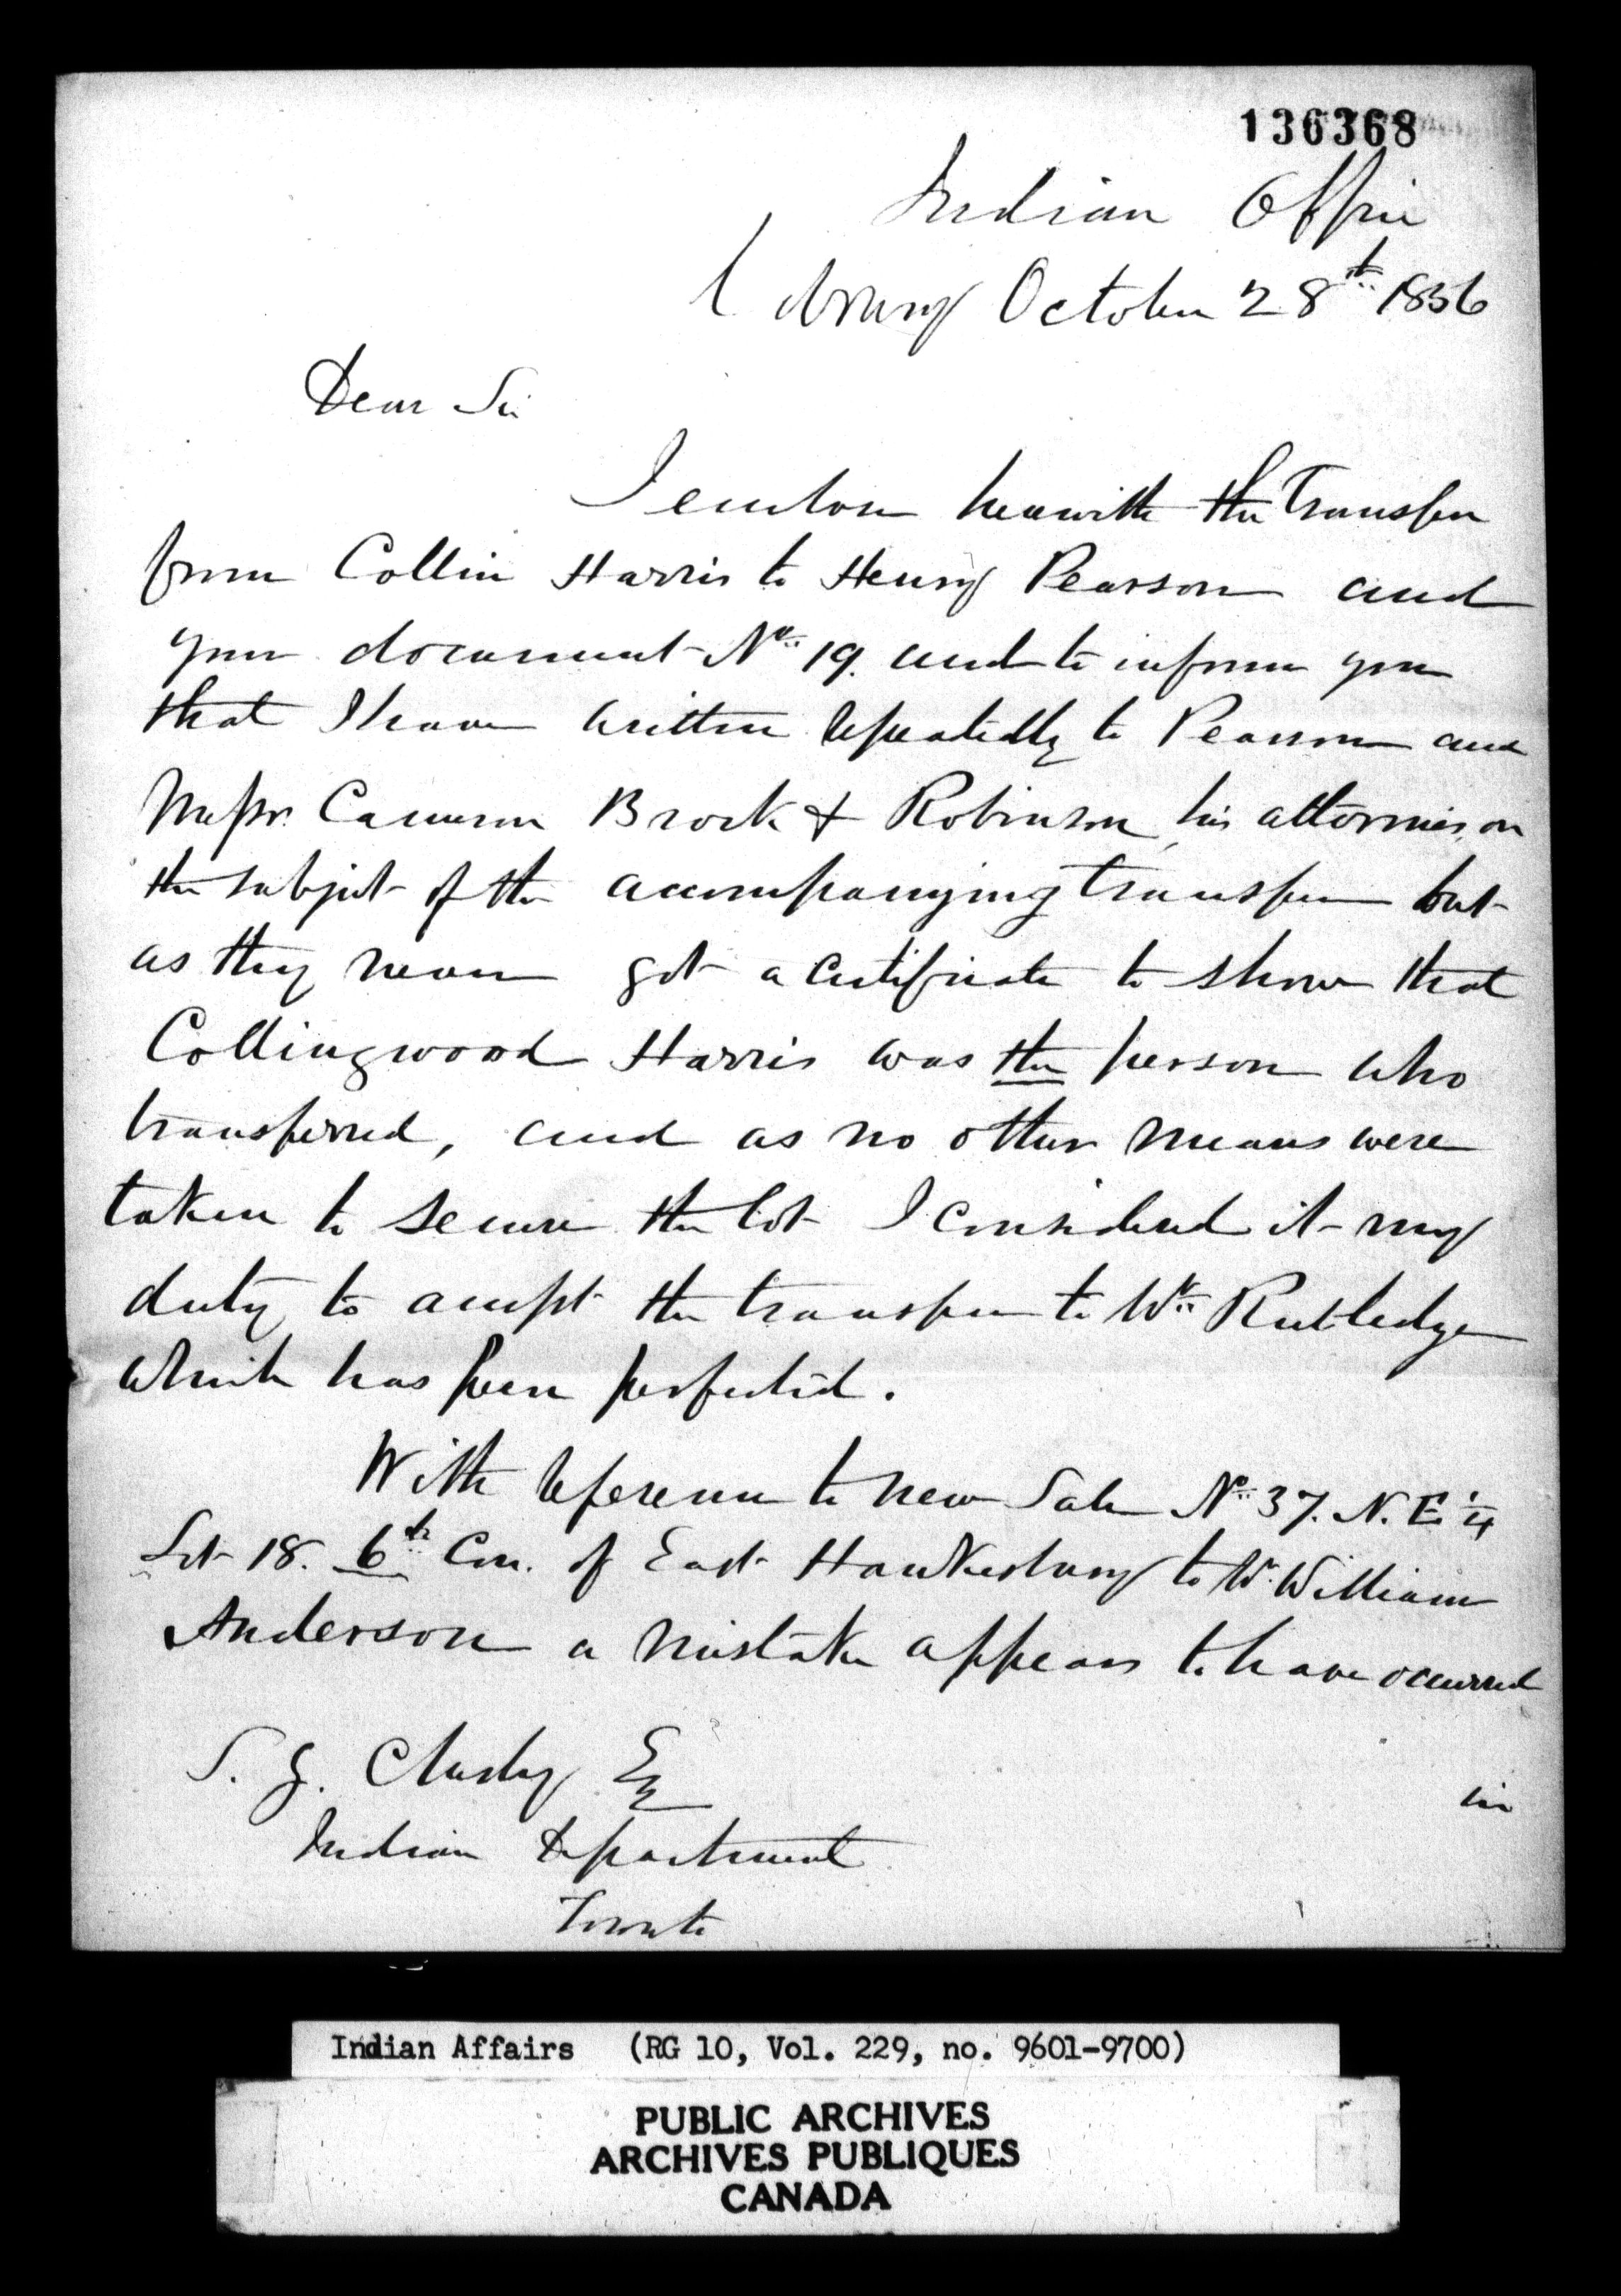 136368
Indian Office
Cobourg October 28th 1856
Dear Sir
I enclose herewith the Transfer
from Collin Harris to Henry Pearson and
your document No 19. and to inform you
that I have written repeatedly to Pearson and
Messr. Cameron Brock & Robinson, his attornies, on
the subject of the accompanying transfer but
as they never got a certificate to show that
Collingwood Harris was the person who
transferred, and as no other means were
taken to secure the lot I considered it my
duty to accept the transfer to Wm Rutledge
which has been perfected.
With reference to new Sale No 37. N. E. ¼
Lot 18. 6th Con. of East Hawkesbury to William
Anderson a mistake appears to have occurred
in
S. Y. Chesley Esq
Indian Department
Toronto
Indian Affairs (RG 10, Vol. 229, no. 9601-9700)
PUBLIC ARCHIVES
ARCHIVES PUBLIQUES
CANADA